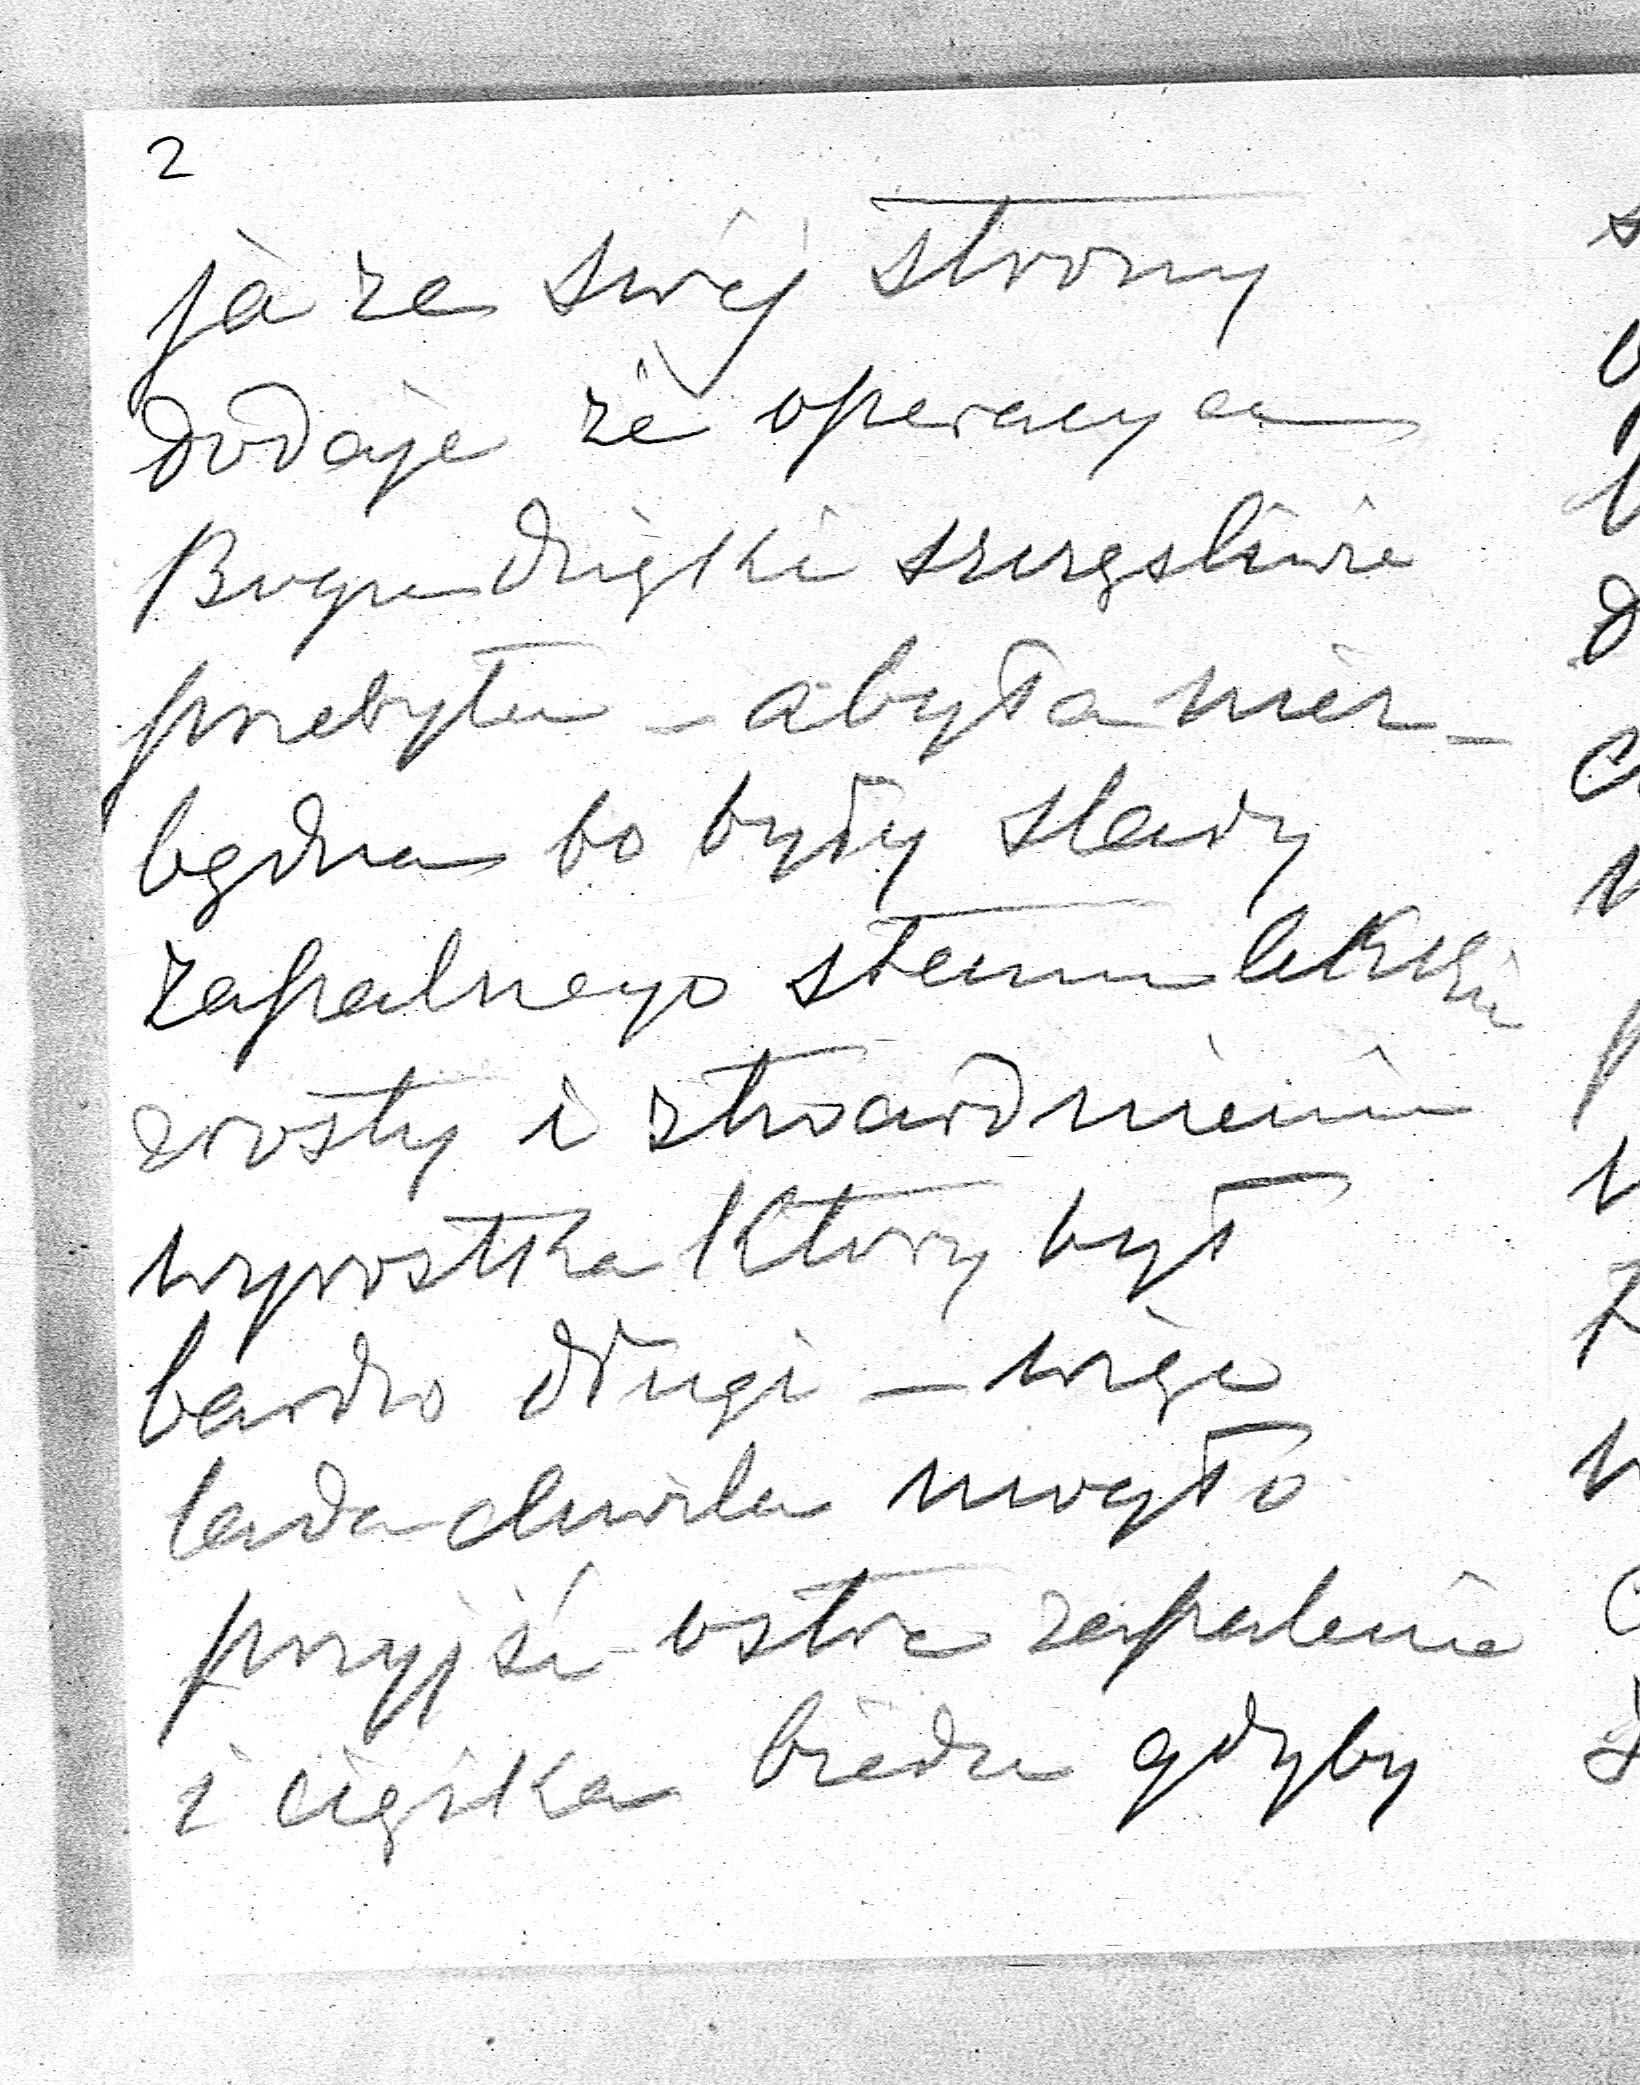 2
ja ze swej strony
dodaję że operacya
Bogu dzięki szczęśliwie
przebyta – a była nież–
będna bo były ślady
zapalnego stanu lekkie
zrosty i stwardnienie
wyrostka który był
bardzo długi – więc
lada chwila mogło
przyjść ostre zapalenie
i ciężka bieda gdyby